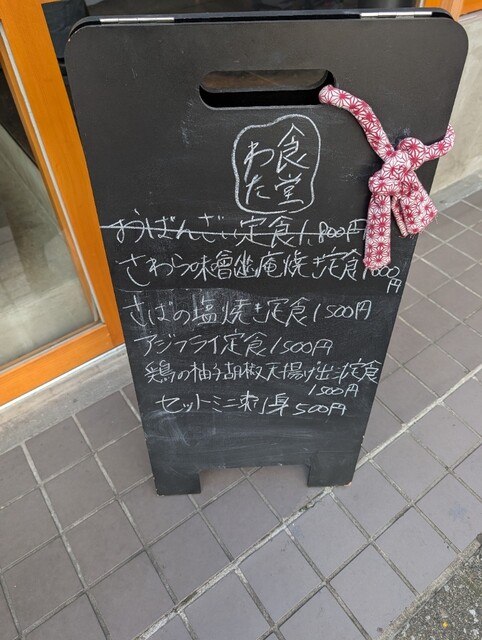 食堂
わた
おばんざい定食1,800円
さわらの味噌幽庵焼き定食
円
さばの塩焼き定食1500円
アジフライ定食1500円
鶏の柚子胡椒天揚げ出し定食
1500円
セットミニ刺身500円